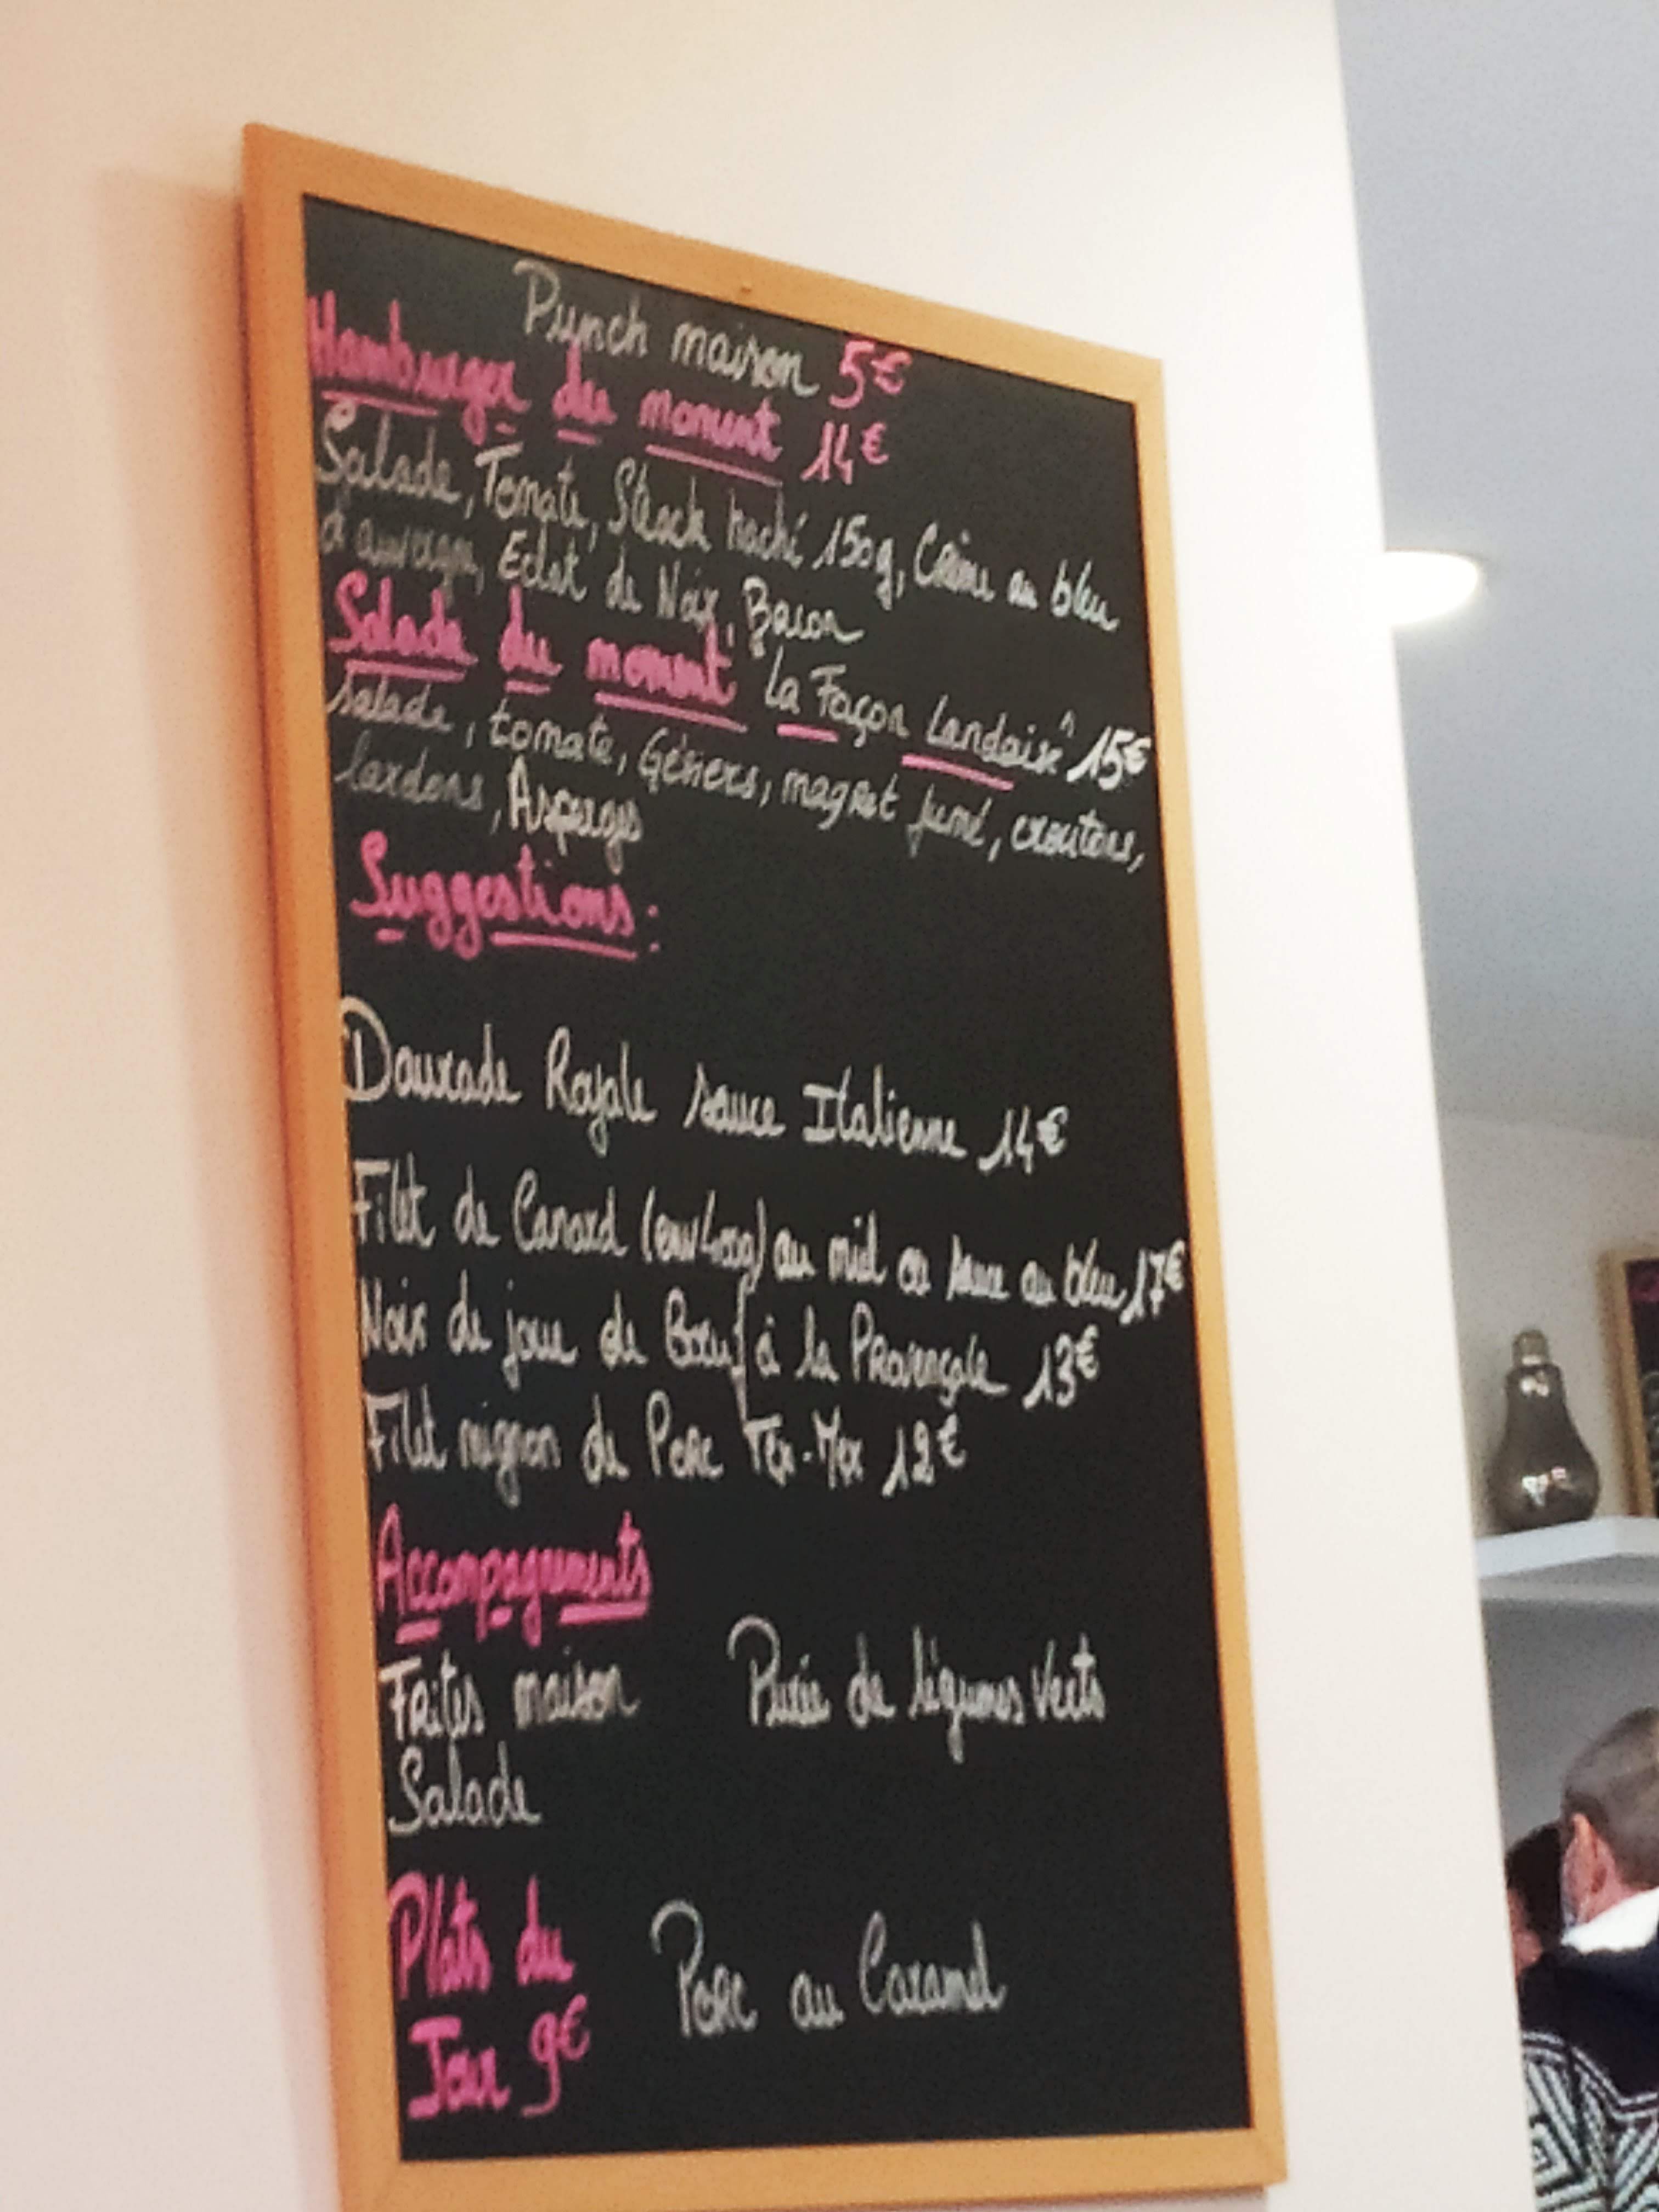 Punch maison 5€
Hamburger du moment 14€
Salade, Tomate, Steack haché 150g, Crème au bleu
d'auvergne, Eclat de Noix, Bacon
Salade du moment "La Façon Landaise" 15€
salade, tomate, Gésiers, magret fumé, croutons,
lardons, Asperges
Suggestions:
Daurade Royale sauce Italienne 14€
Filet de Canard (env 400g) au miel ou sauce au bleu 17€
Noix de joue de Bœuf à la Provençale 13€
Filet mignon de Porc Tex-Mex 12€
Accompagnements
Frites maison Purée de légumes verts
Salade
Plats du
Jour 9€ Porc au Caramel